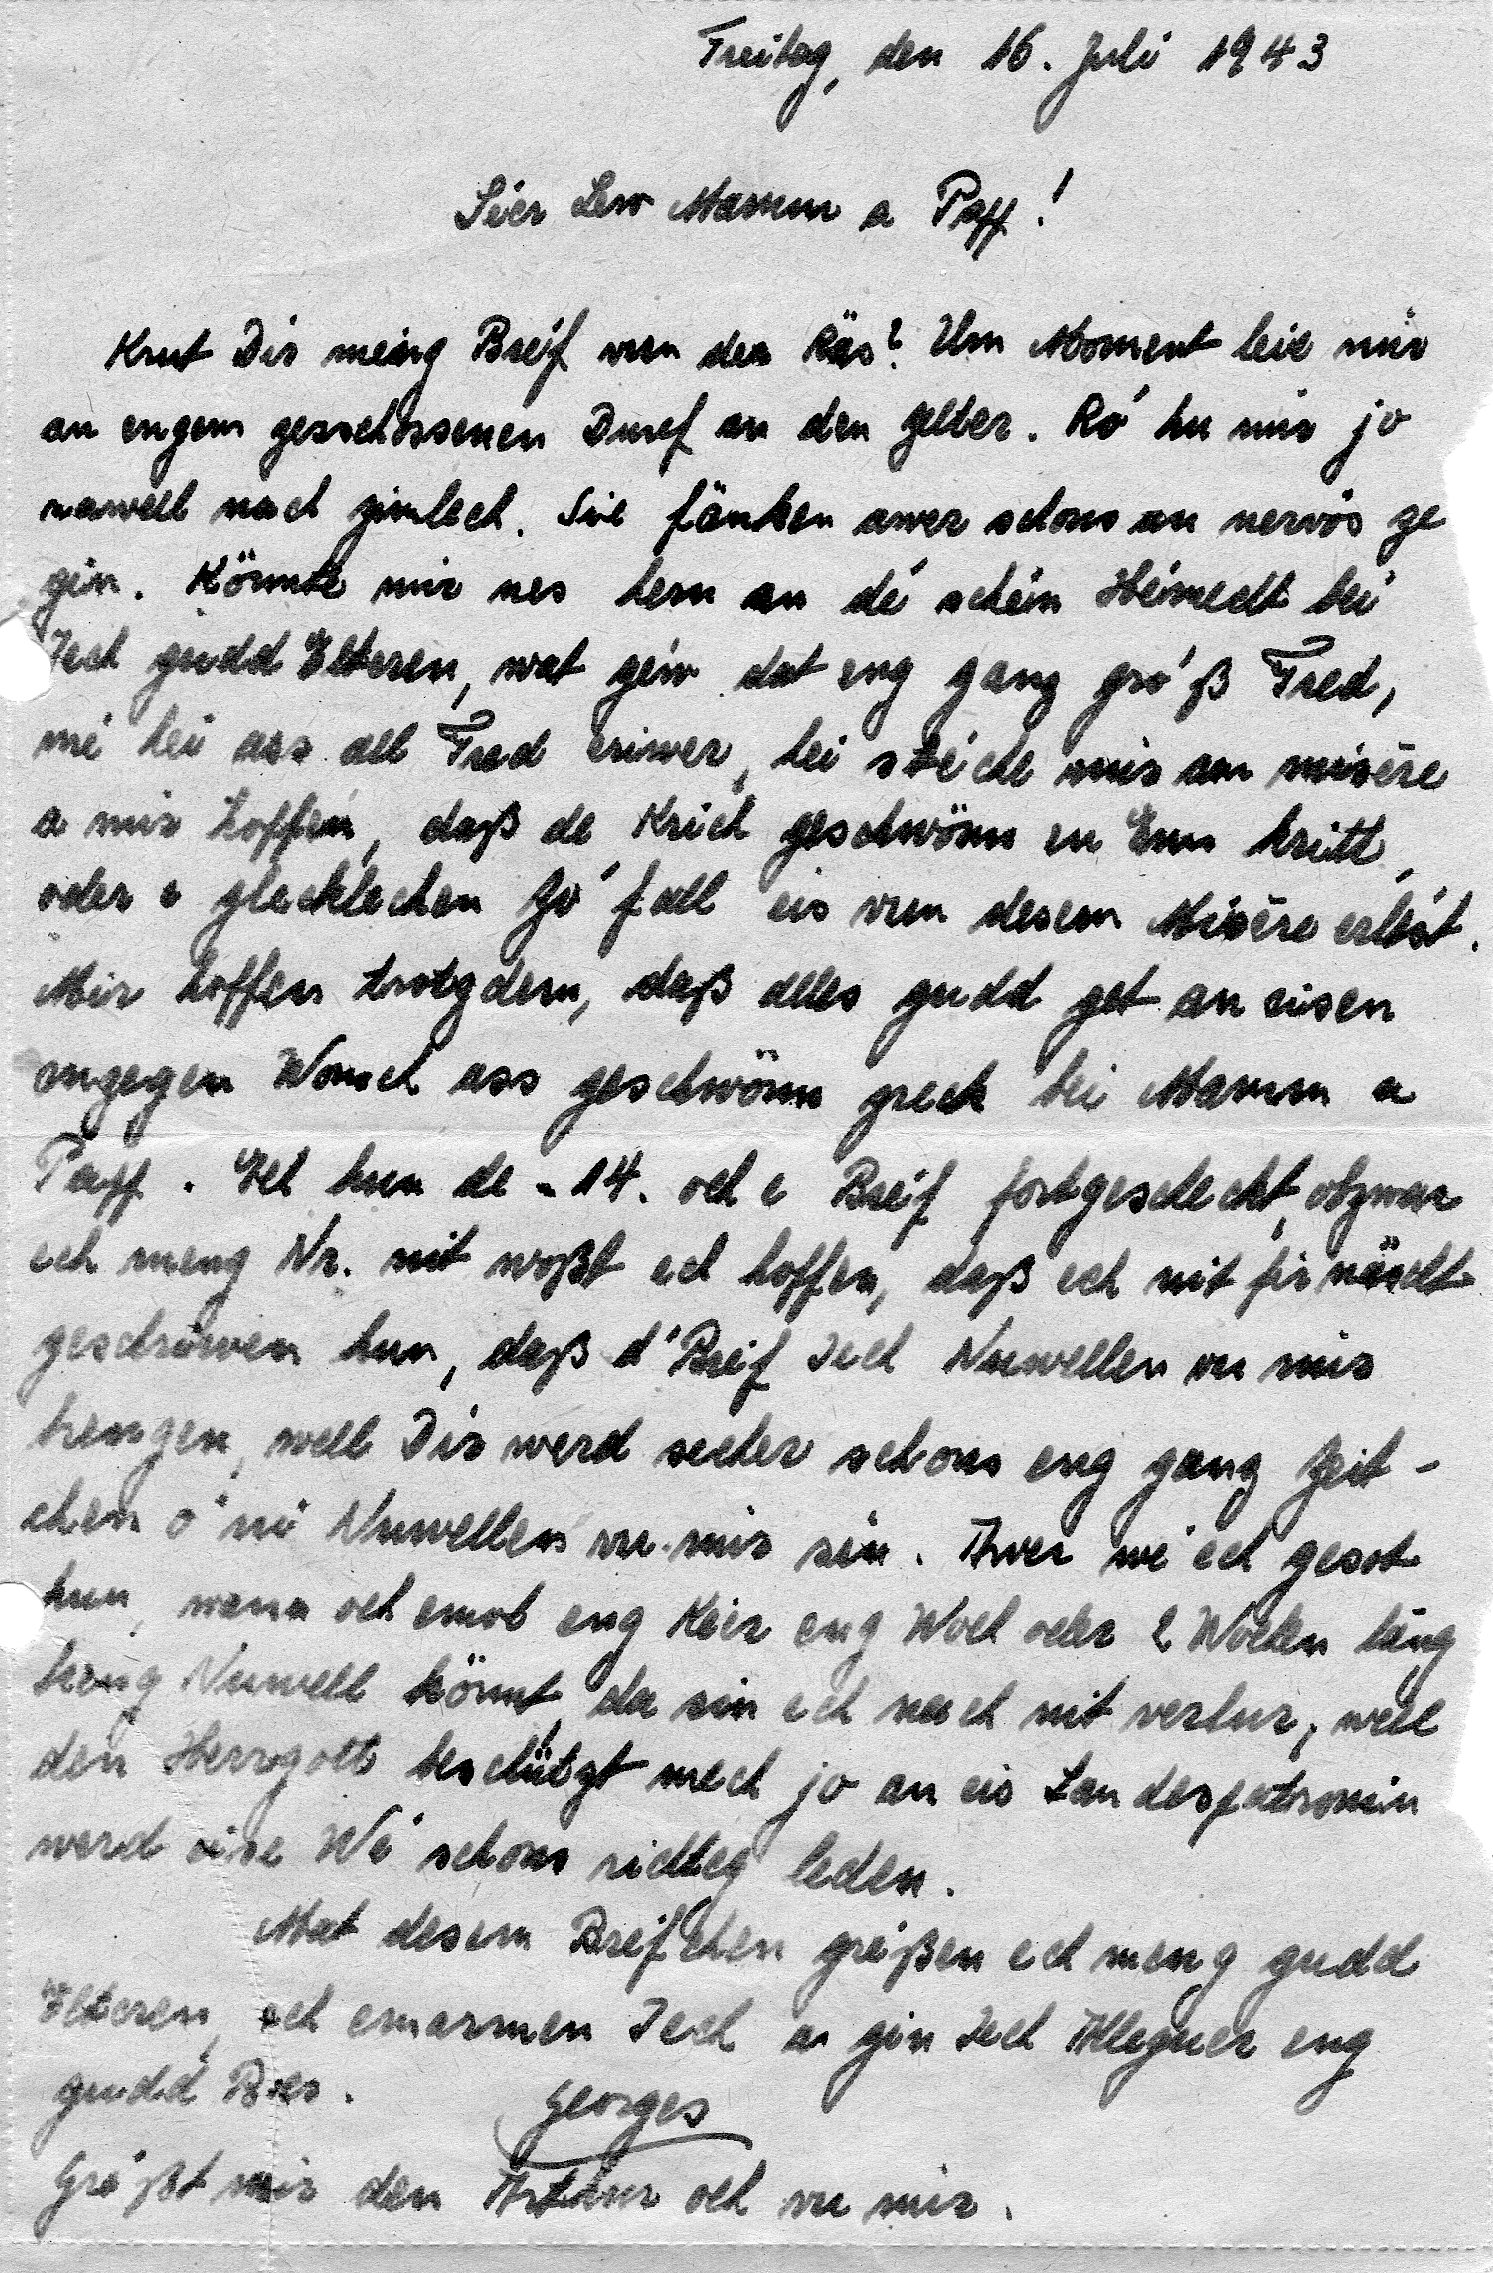 Freitag, den 16. Juli 1943
Léier Lew Mamm a Papp!
Krut Dir meing Breif vun der Räs? Um Moment leie mir
an engem geschossenen Duref an den Zelter. Ro' hu mir jo
nawell nach zimlech. Sie fänken awer schons un nervös ze
gin. Könnte mir nes hem an dé schéin Héimecht bei
Iech gudd Elteren, wat géiw dat eng ganz gro'ß Fred,
mé hei ass all Fred eriwer, hei stéiche mir am misère
a mir hoffen, daß de Krich geschwönn en Enn hritt,
oder e glecklechen Zo'fall eis vun desem Misère erlést.
Mir hoffen trotzdem, daß alles gudd get an eisen
enzegen Wonsch ass geschwönn zreck bei Mamm a
Papp. Ech hun de - 14. och e Breif fortgescheckt, obzwar
ech meng Nr. nit woßt ech hoffen, daß ech nit fir näscht
geschriwen hun, daß d'Breif Iech Nuwellen vu mir
brengen, well Dir werd secher schons eng ganz Zeit-
chen o'ni Nuwellen vu mir sin. Awer wé ech gesot
hun, wann och emol eng Keier eng Woch oder 2 Wochen läng
keng Nuwell könnt, da sin ech nach nit verlur, well
den Herrgott beschützt mech jo an eis Landespatronin
werd eise Wé schons richteg leden.
Mat desem Breifchen gréißen ech meng gudd
Elteren, ech emarmen Iech a gin Iech Allezuer eng
gudd Bees.
Georges
Gré'ßt mir den Arthur och vu mir.